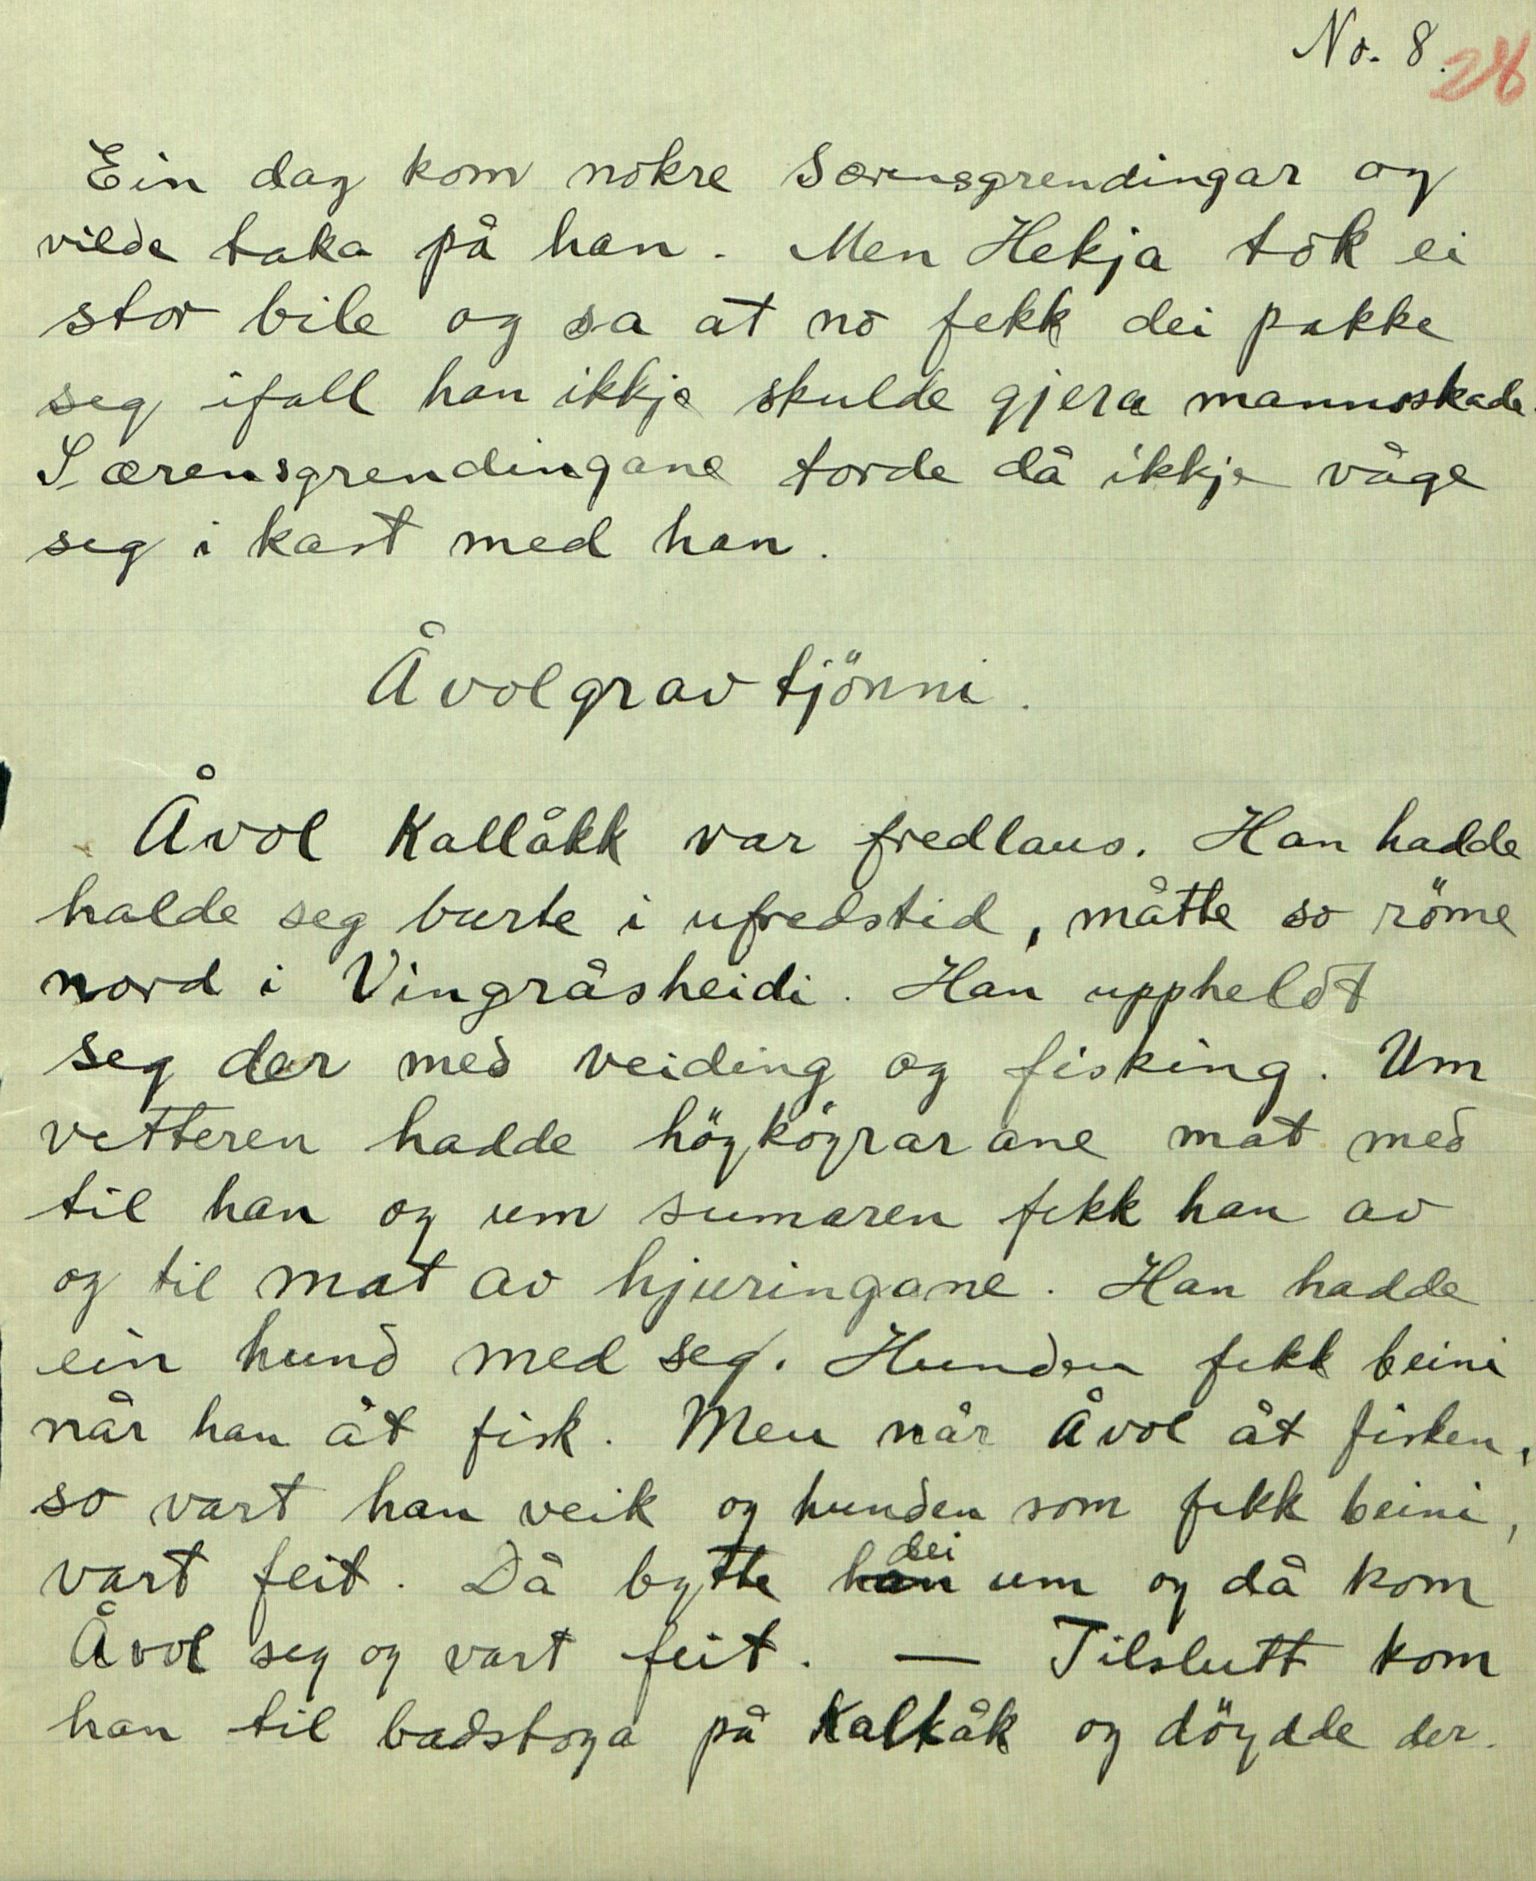 No. 8.
28
Ein dag kom nokre Særensgrendingar og
vilde taka på han. Men Hekja tok ei
stor bile og sa at no fekk dei pakke
seg ifall han ikkje skulde gjera mannoskade.
Særensgrendingane torde då ikkje våge
seg i kast med han.
Åvolgravtjönni.
Åvol Kallåkk var fredlaus. Han hadde
halde seg burte i ufredstid, måtte so röme
nord i Vingråsheidi. Han uppheldt
seg der med veiding og fisking. Um
vetteren hadde högkögrarane mat med
til han og um sumaren fekk han av
og til mat av hjuringane. Han hadde
ein hund med seg. Hunden fekk beini
når han åt fisk. Men når Åvol åt fisken,
so vart han veik og hunden som fekk beini,
vart feit. Då bytte han dei um og då kom
Åvol seg og vart feit. — Tilslutt kom
han til badstoga på Kallåk og döydde der.